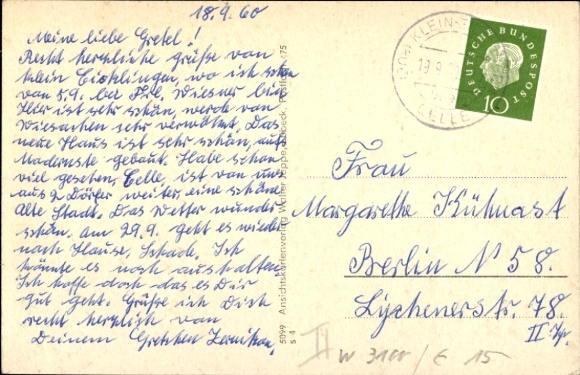 18.9.60
Meine liebe Gretel!
Recht herzliche Grüße von
Klein Eicklingen, wo ich schon
von 5.9. bei Frl. Wiesner bin.
Hier ist sehr schön, werde von
sehr verwöhnt. Das
neue Haus ist sehr schön, aufs
Modernste gebaut. Habe schon
viel gesehen, Celle, ist von uns
aus 2 Dörfer weiter, eine schöne
Alte Stadt. Das Wetter wunder
schön. am 29.9. geht es wieder
nach Hause, Schade. Ich
könnte es noch aushalten.
Ich hoffe doch das es Dir
gut geht. Grüße ich Dich
recht herzlich von
Deinem Gretchen
5099 Ansichtskartenverlag Walter
s 4
KLEIN-
CELLE
DEUTSCHE BUNDESPOST
10
Frau
Margarethe Kühnast
Berlin N 58.
Lychenerstr. 78.
II Tr.
W 3100 / E 15